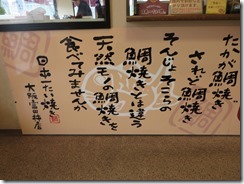 たかが鯛焼き
されど鯛焼き
そんじょそこらの
鯛焼きとは違う
天然モノの鯛焼きを
食べてみませんか
日本一たい焼き